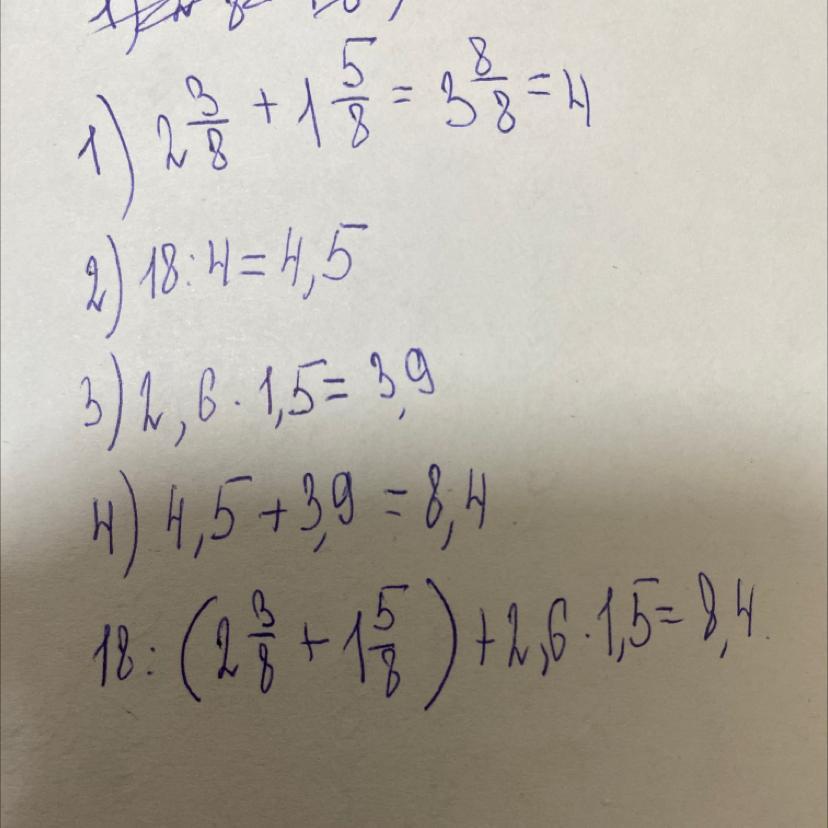 1) 2 3/8 + 1 5/8 = 3 8/8 = 4
2) 18 : 4 = 4,5
3) 2,6 · 1,5 = 3,9
4) 4,5 + 3,9 = 8,4
18 : (2 3/8 + 1 5/8) + 2,6 · 1,5 = 8,4